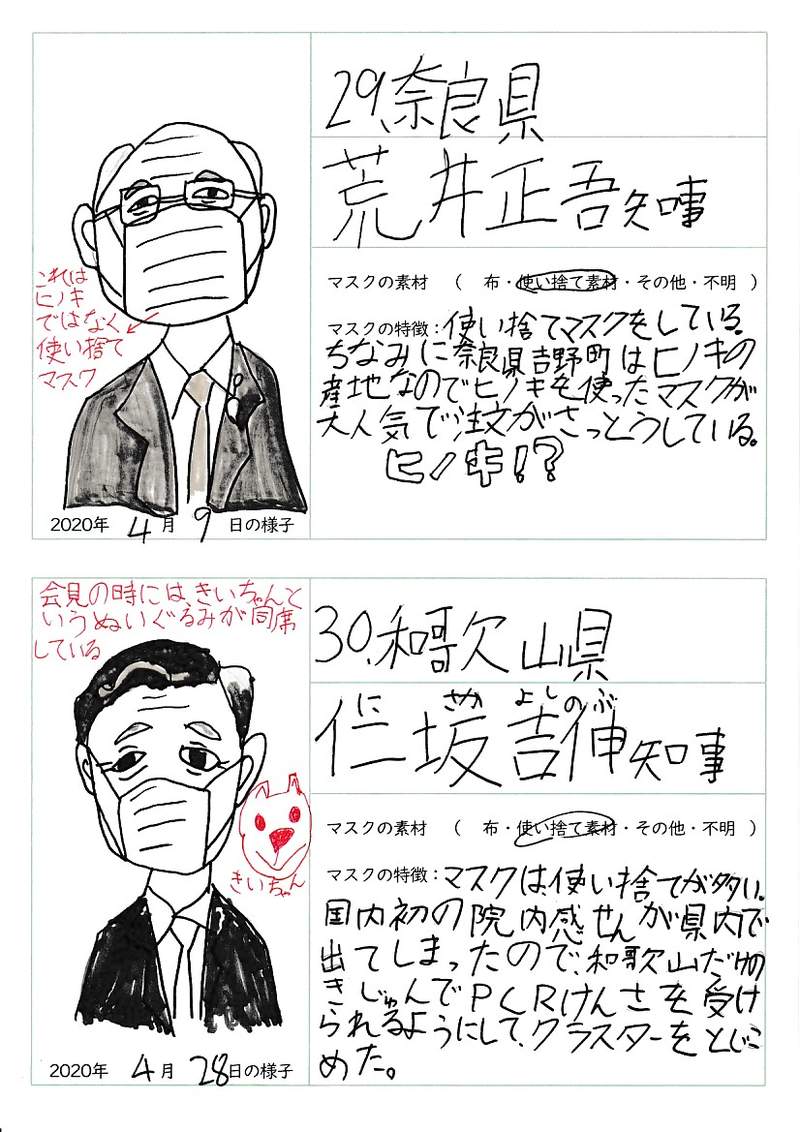 29.奈良県
荒井正吾知事
マスクの素材 ( 布・使い捨て素材・その他・不明 )
マスクの特徴:使い捨てマスクをしている。
ちなみに奈良県吉野町はヒノキの
産地なのでヒノキを使ったマスクが
大人気で注文がさっとうしている。
ヒノキ!?
これは
ヒノキ
ではなく
使い捨て
マスク
2020年 4月 9日の様子
会見の時には、きいちゃんと
いうぬいぐるみが同席
している
30.和歌山県
に ざか よしのぶ
仁坂吉伸知事
マスクの素材 ( 布・使い捨て素材・その他・不明 )
マスクの特徴:マスクは使い捨てが多い。
国内初の院内感せんが県内で
出てしまったので、和歌山だけの
きじゅんでPCRけんさを受け
られるようにして、クラスターをとじこ
めた。
きいちゃん
2020年 4月 28日の様子